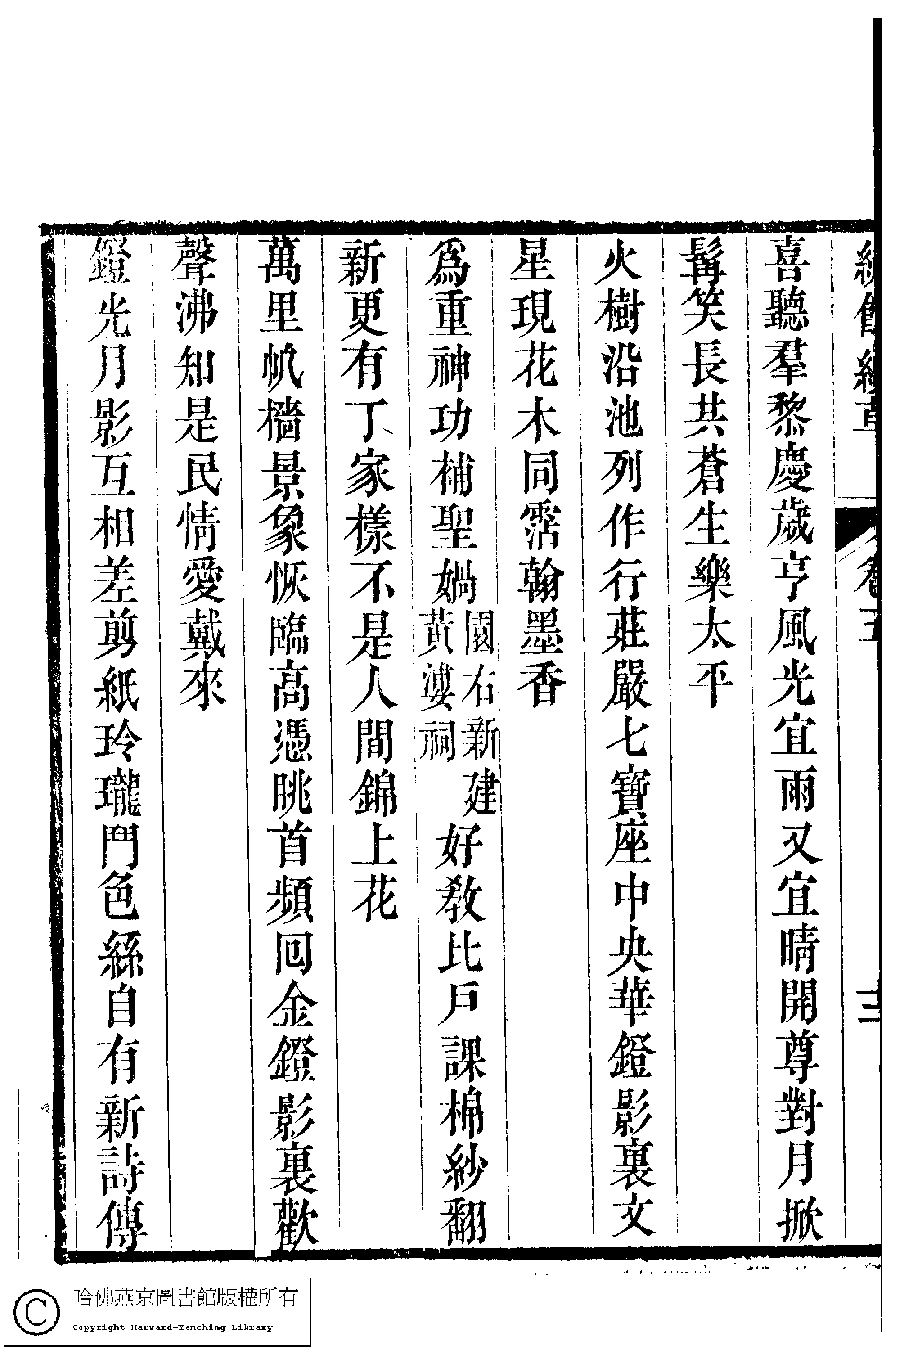 喜聽羣黎慶歲亨風光宜雨又宜晴開尊對月掀
髯笑長共蒼生樂太平
火樹沿池列作行莊嚴七寶座中央華鐙影裏文
星現花木同霑翰墨香
爲重神功補聖媧園右新建黃婆祠好敎比戶課棉紗翻
新更有丁家樣不是人間錦上花
萬里帆檣景象恢臨高憑眺首頻回金鐙影裏歡
聲沸知是民情愛戴來
鐙光月影互相差剪紙玲瓏鬥色絲自有新詩傳
哈佛燕京圖書館版權所有
Copyright Harvard-Yenching Library